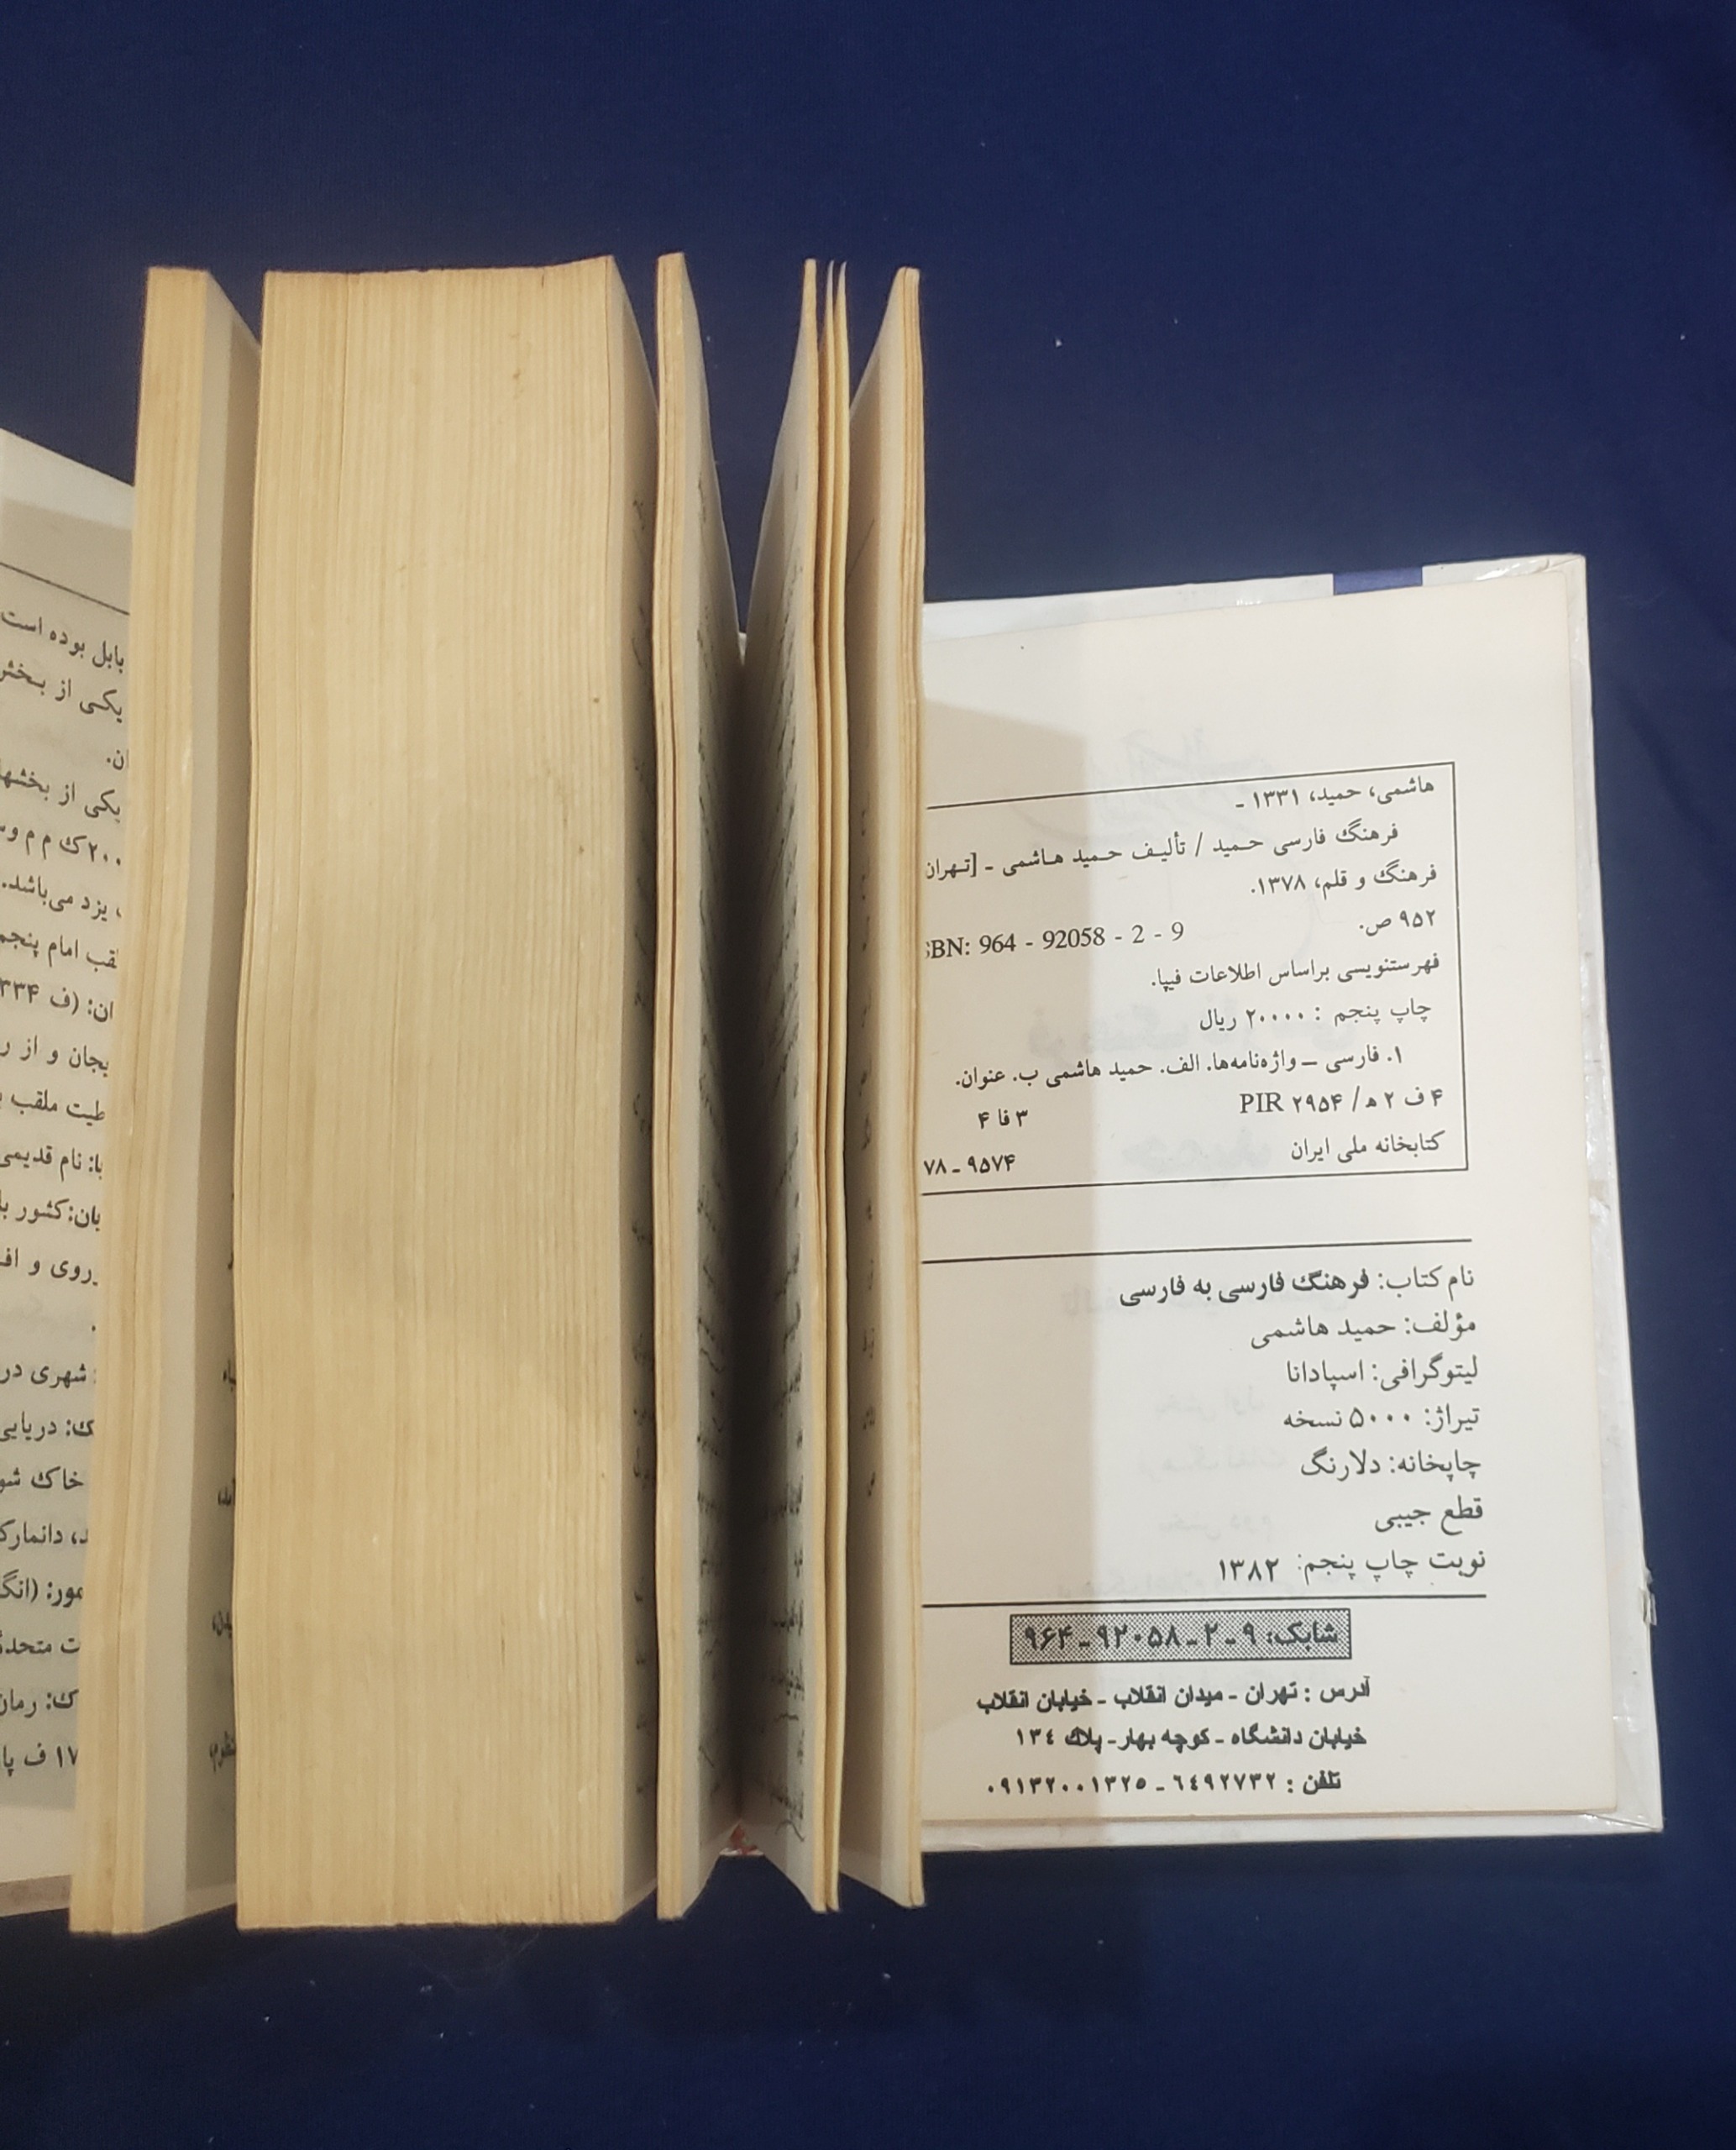 هاشمی، حمید، ۱۳۳۱ ـ
فرهنگ فارسی حمید / تألیف حمید هاشمی ـ [تهران
فرهنگ و قلم، ۱۳۷۸.
۹۵۲ ص.
SBN: 964 - 92058 - 2 - 9
فهرستنویسی براساس اطلاعات فیپا.
چاپ پنجم : ۲۰۰۰۰ ریال
۱. فارسی ــ واژه‌نامه‌ها. الف. حمید هاشمی ب. عنوان.
۴ ف ۲ ه‍/ ۲۹۵۴ PIR
۳ فا ۴
کتابخانه ملی ایران
۷۸ ـ ۹۵۷۴
نام کتاب: فرهنگ فارسی به فارسی
مؤلف: حمید هاشمی
لیتوگرافی: اسپادانا
تیراژ: ۵۰۰۰ نسخه
چاپخانه: دلارنگ
قطع جیبی
نوبت چاپ پنجم: ۱۳۸۲
شابک: ۹ ـ ۲ ـ ۹۲۰۵۸ ـ ۹۶۴
آدرس : تهران - میدان انقلاب - خیابان انقلاب
خیابان دانشگاه - کوچه بهار - پلاک ۱۳٤
تلفن : ٦٤۹۲۷۳۲ - ۰۹۱۳۲۰۰۱۳۲٥
بابل بوده است
یکی از بخش
ان.
یکی از بخشها
۲۰۰ ک م م و
یزد می‌باشد.
قب امام پنجم
ان: (ف ۳۳۴
یجان و از
طیت ملقب
با: نام قدیمی
بان: کشور
روی و
شهری در
ک: دریایی
خاک
د، دانمارک
مور: (انگ
ت متحده
ک: رمان
۱۷ ف